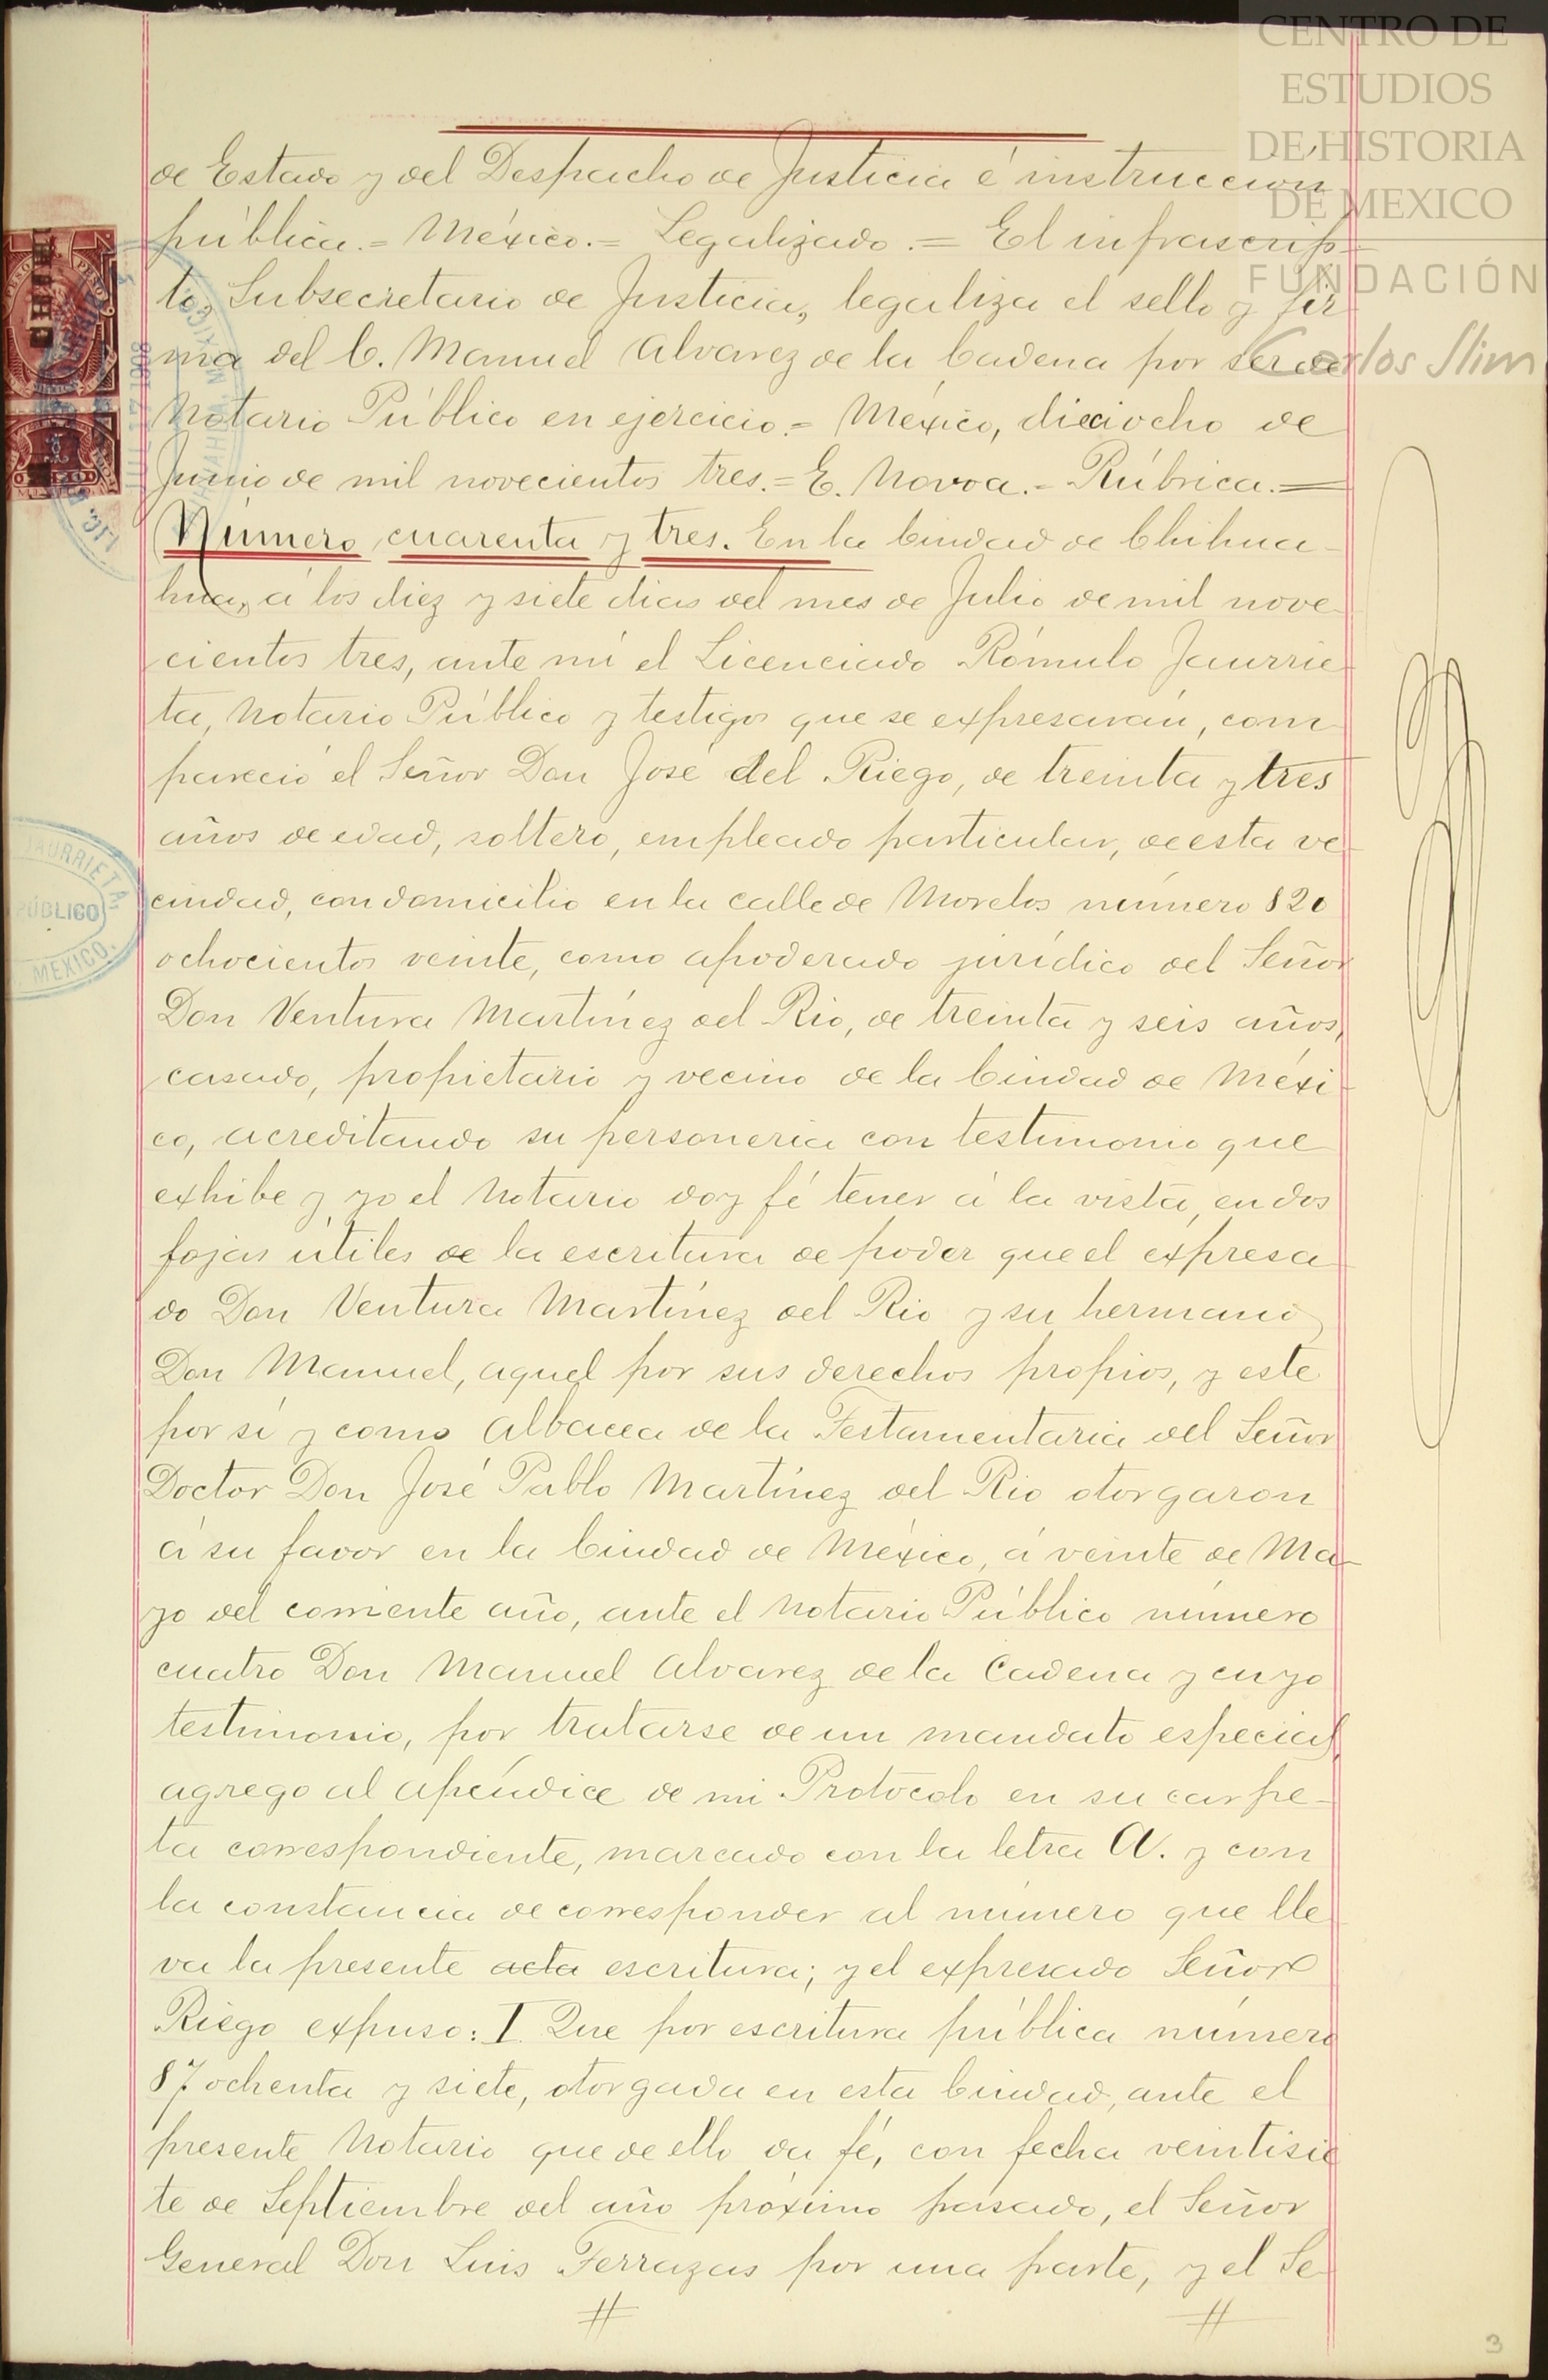 CENTRO DE
ESTUDIOS
DE HISTORIA
DE MEXICO
FUNDACIÓN
Carlos Slim
de Estado y del Despacho de Justicia é instruccion
pública.= México.= Legalizado.= El infrascrip-
to, Subsecretario de Justicia, legaliza el sello y fir
ma del C. Manuel Alvarez de la Cadena por ser de
Notario Público en ejercicio.= México, dieciocho de
Junio de mil novecientos tres.= E. Novoa.- Rúbrica.=
Número cuarenta y tres. En la Ciudad de Chihua-
hua, á los diez y siete dias del mes de Julio de mil nove-
cientos tres, ante mí el Licenciado Rómulo Jaurrie-
ta, Notario Público y testigos que se expresarán, com-
pareció el Señor Don José del Riego, de treinta y tres
años de edad, soltero, empleado particular, de esta ve-
cindad, con domicilio en la calle de Morelos número 820
ochocientos veinte, como apoderado jurídico del Señor
Don Ventura Martínez del Rio, de treinta y seis años,
casado, propietario y vecino de la Ciudad de Méxi-
co, acreditando su personeria con testimonio que
exhibe y yo el Notario doy fé tener á la vista, en dos
fojas útiles de la escritura de poder que el expresa-
do Don Ventura Martínez del Rio y su hermano
Don Manuel, aquel por sus derechos propios, y este
por sí y como Albacea de la Testamentaria del Señor
Doctor Don José Pablo Martínez del Rio otorgaron
á su favor en la Ciudad de México, á veinte de Ma-
yo del corriente año, ante el Notario Público número
cuatro Don Manuel Alvarez de la Cadena y cuyo
testimonio, por tratarse de un mandato especial,
agrego al apéndice de mi Protócolo en su carpe-
ta correspondiente, marcado con la letra A. y con
la constancia de corresponder al número que lle-
va la presente acta escritura; y el expresado Señor
Riego expuso: I Que por escritura pública número
87 ochenta y siete, otorgada en esta Ciudad, ante el
presente Notario que de ello da fé, con fecha veintisie
te de Septiembre del año próximo pasado, el Señor
General Don Luis Terrazas por una parte, y el Se-
JAURRIETA
PÚBLICO
MEXICO.
3